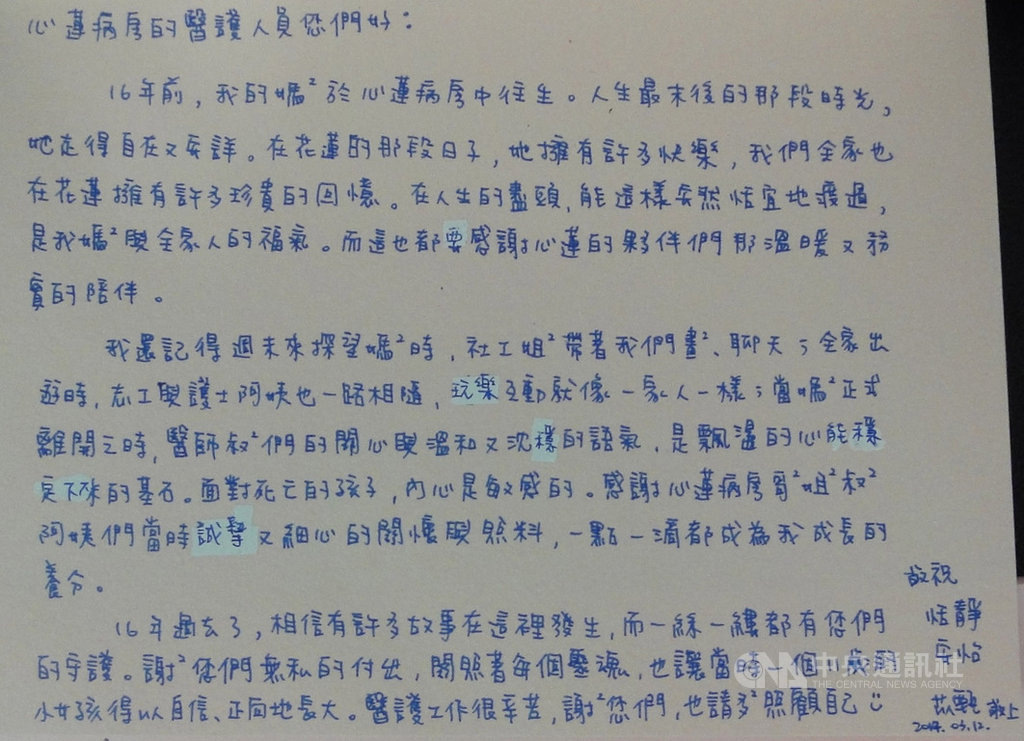 心蓮病房的醫護人員您們好：
16年前，我的媽²於心蓮病房中往生。人生最末後的那段時光，
她走得自在又安詳。在花蓮的那段日子，她擁有許多快樂，我們全家也
在花蓮擁有許多珍貴的回憶。在人生的盡頭，能這樣安然恬宜地渡過，
是我媽²與全家人的福氣。而這也都要感謝心蓮的夥伴們那溫暖又務
實的陪伴。
我還記得週末來探望媽²時，社工姐²帶著我們畫²、聊天；全家出
遊時，志工與護士阿姨也一路相隨，玩樂互動就像一家人一樣；當媽²正式
離開之時，醫師叔²們的關心與溫和又沈穩的語氣，是飄盪的心能穩
定下來的基石。面對死亡的孩子，內心是敏感的。感謝心蓮病房哥²姐²叔²
阿姨們當時誠摯又細心的關懷與照料，一點一滴都成為我成長的
養分。
16年過去了，相信有許多故事在這裡發生，而一絲一縷都有您們
的守護。謝²您們無私的付出，關照著每個靈魂，也讓當時一個
小女孩得以自信、正向地長大。醫護工作很辛苦，謝²您們，也請多²照顧自己
敬祝
恬靜
安怡
敬上
03.12.
中央通訊社
THE CENTRAL NEWS AGENCY